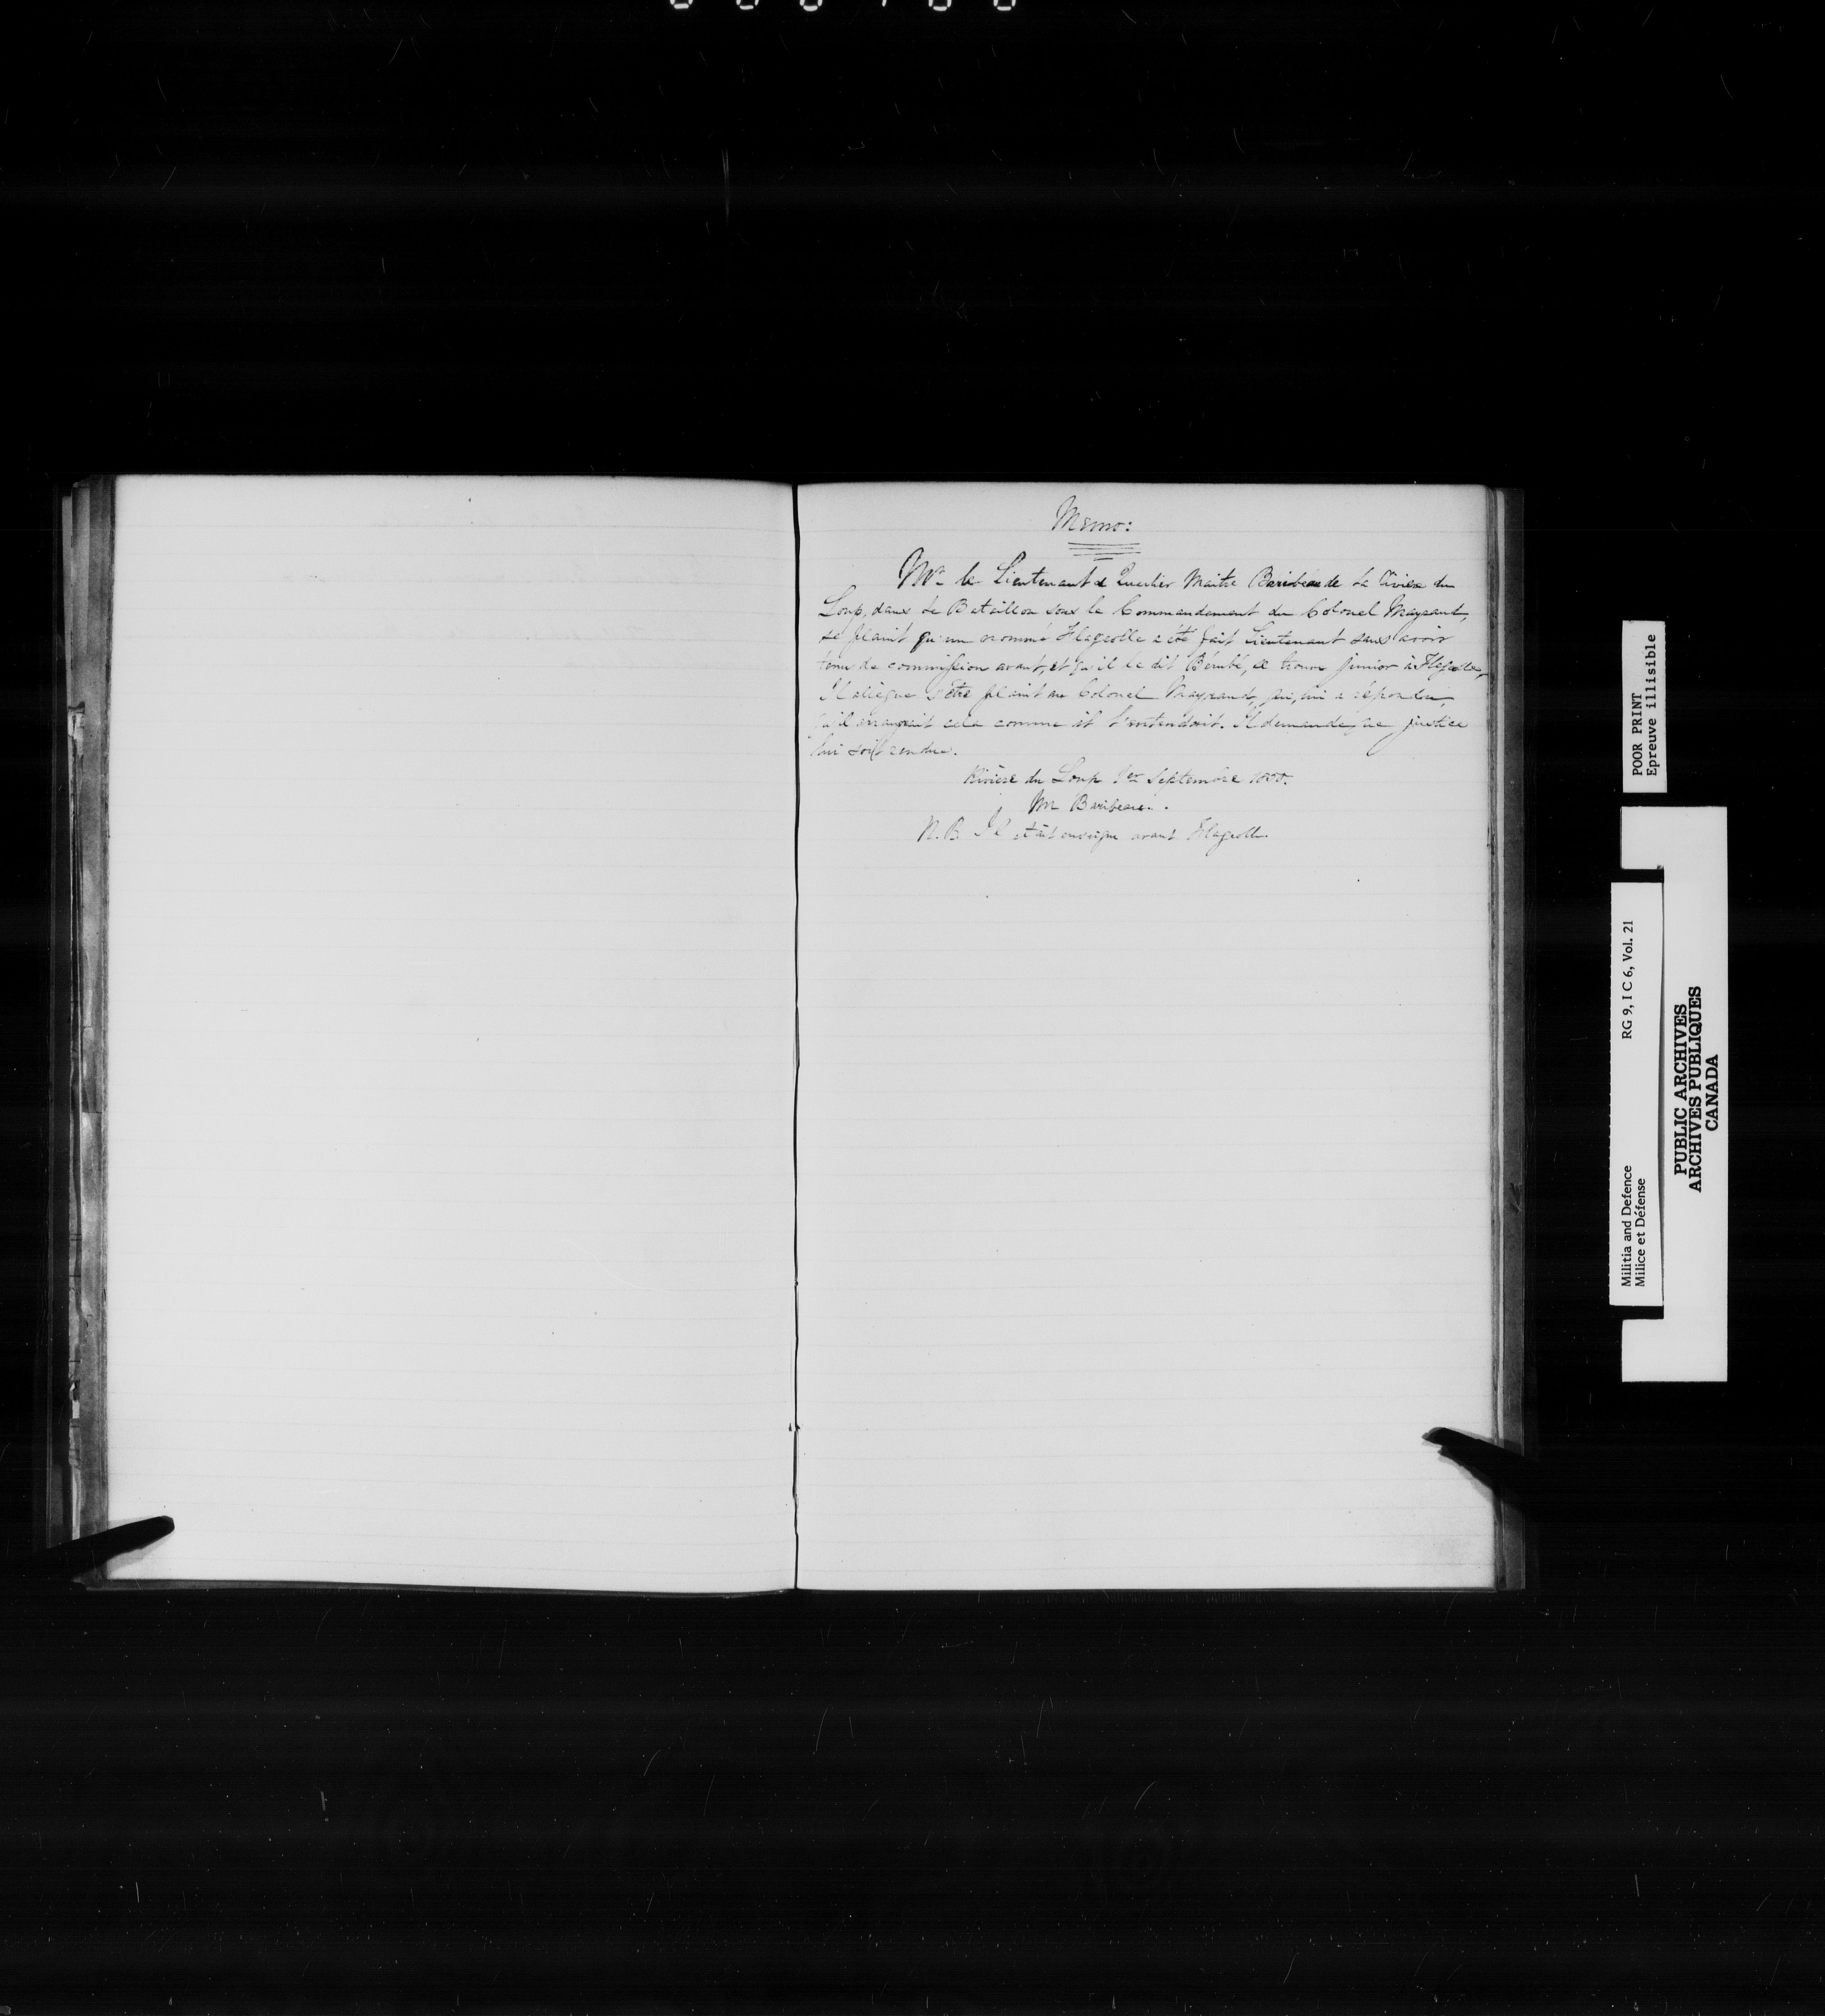 Memo:
Mr le Lieutenant & Quartier Maitre Baribeau de la Rivière du
Loup, dans le Bataillon sous le Commandement du Colonel Mayrand,
se plaint qu'un nommé Flageolle a été fait Lieutenant sans avoir
tenu de commission avant, et qu'il le dit se trouve junior à
Il allègue s'être plaint au Colonel Mayrand, qui, lui a répondu,
qu'il arrangerait cela comme il l'entendroit. Il demande que justice
lui soit rendue.
Rivière du Loup 1er Septembre
Mr Baribeau.
N.B. Il était enseigne avant Flageolle
POOR PRINT
Epreuve illisible
RG 9, I C 6, Vol. 21
Militia and Defence
Milice et Défense
PUBLIC ARCHIVES
ARCHIVES PUBLIQUES
CANADA